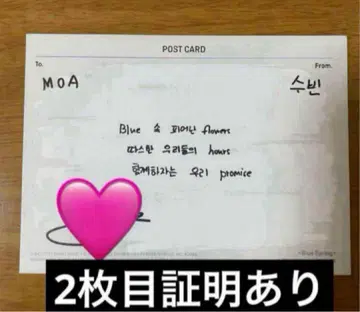 POST CARD
To.
From.
MOA
수빈
Blue 숲 피어난 flowers
따스한 우리들의 hours
함께하자는 우리 promise
2枚目証明あり